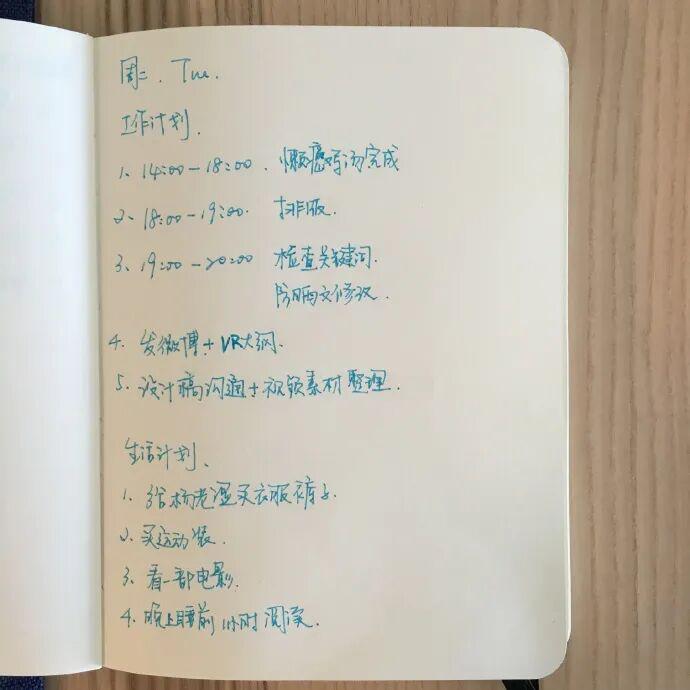 周二. Tue.
工作计划.
1、14:00-18:00. 懒癌鸡汤完成
2、18:00-19:00. 排版.
3、19:00-20:00 检查关键词.
文修改.
4. 发微博+VR大纲.
5. 设计稿沟通+视频素材整理.
生活计划、
1. 给杨老湿买衣服裤子.
2. 买运动装.
3. 看一部电影.
4. 晚上睡前1小时阅读.